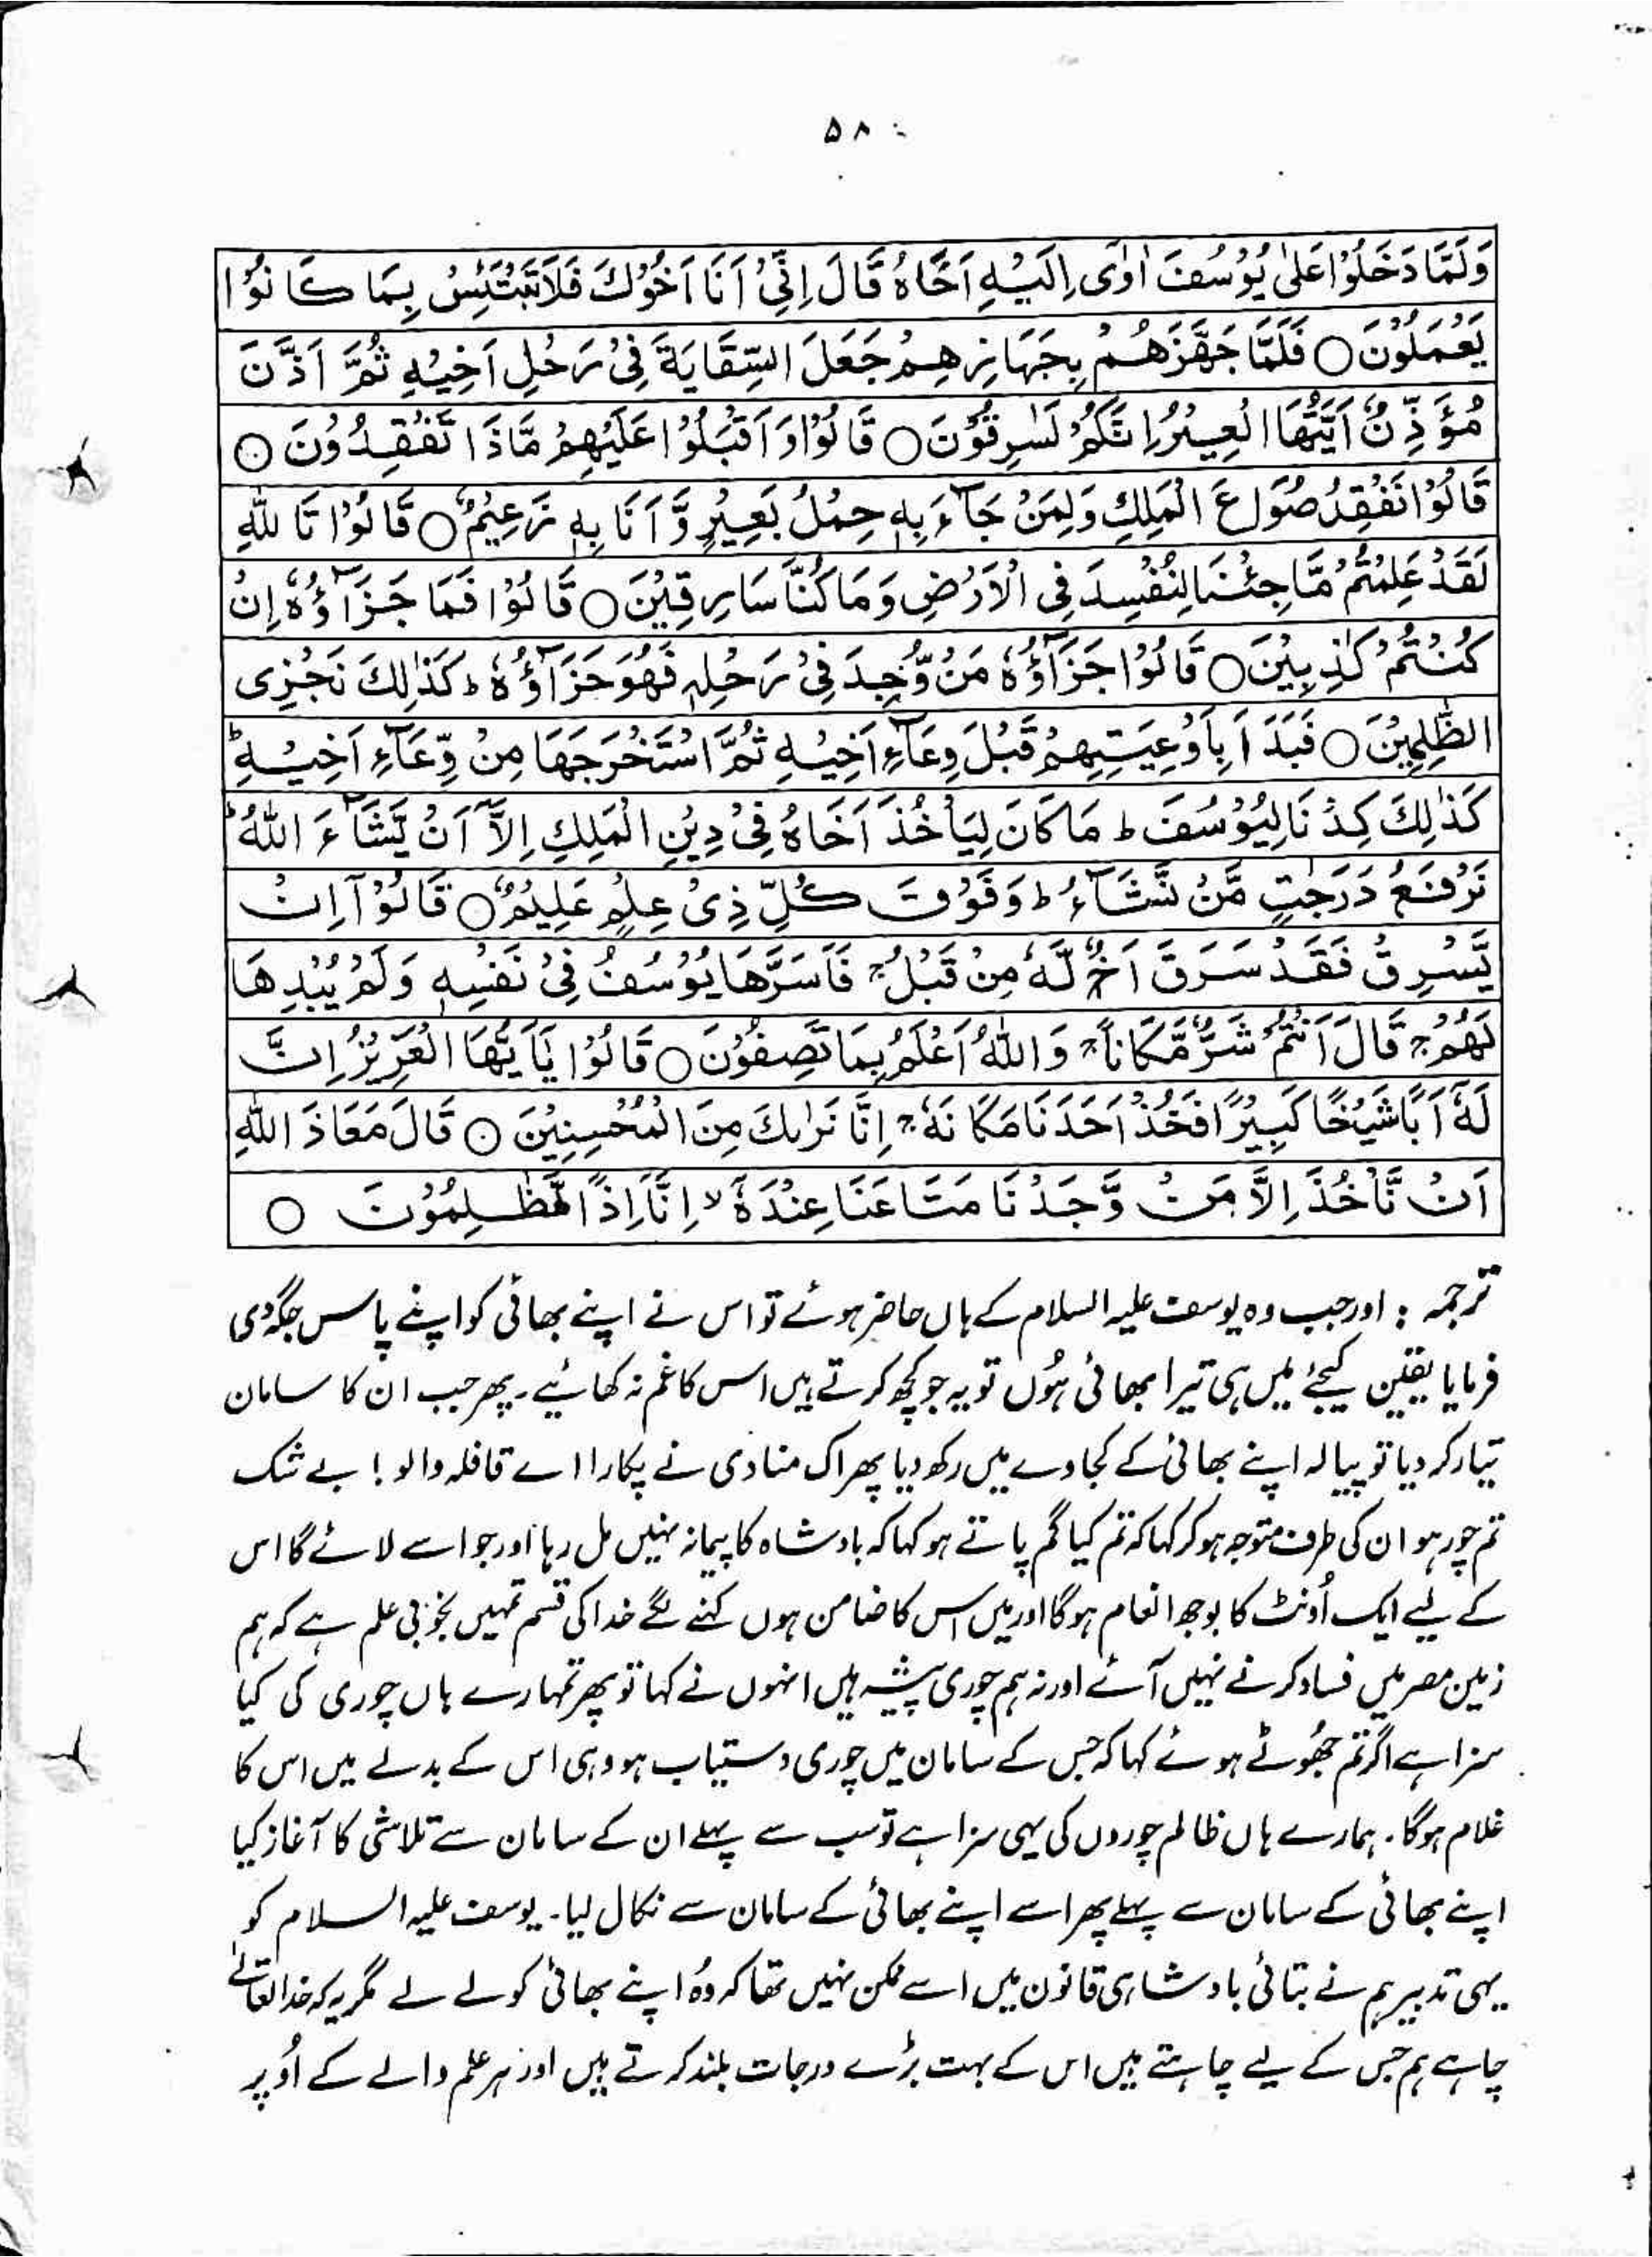 ۵۸
وَلَمَّا دَخَلُوْا عَلٰى يُوْسُفَ اٰوٰٓى اِلَيْهِ اَخَاهُ قَالَ اِنِّىْٓ اَنَا اَخُوْكَ فَلَا تَبْتَئِسْ بِمَا كَانُوْا
يَعْمَلُوْنَ ○ فَلَمَّا جَهَّزَهُمْ بِجَهَازِهِمْ جَعَلَ السِّقَايَةَ فِىْ رَحْلِ اَخِيْهِ ثُمَّ اَذَّنَ
مُؤَذِّنٌ اَيَّتُهَا الْعِيْرُ اِنَّكُمْ لَسٰرِقُوْنَ ○ قَالُوْا وَاَقْبَلُوْا عَلَيْهِمْ مَّاذَا تَفْقِدُوْنَ ○
قَالُوْا نَفْقِدُ صُوَاعَ الْمَلِكِ وَلِمَنْ جَآءَ بِهٖ حِمْلُ بَعِيْرٍ وَّاَنَا بِهٖ زَعِيْمٌ ○ قَالُوْا تَاللّٰهِ
لَقَدْ عَلِمْتُمْ مَّا جِئْنَا لِنُفْسِدَ فِى الْاَرْضِ وَمَا كُنَّا سَارِقِيْنَ ○ قَالُوْا فَمَا جَزَآؤُهٗ اِنْ
كُنْتُمْ كٰذِبِيْنَ ○ قَالُوْا جَزَآؤُهٗ مَنْ وُّجِدَ فِىْ رَحْلِهٖ فَهُوَ جَزَآؤُهٗ ط كَذٰلِكَ نَجْزِى
الظّٰلِمِيْنَ ○ فَبَدَاَ بِاَوْعِيَتِهِمْ قَبْلَ وِعَآءِ اَخِيْهِ ثُمَّ اسْتَخْرَجَهَا مِنْ وِّعَآءِ اَخِيْهِ ط
كَذٰلِكَ كِدْنَا لِيُوْسُفَ ط مَا كَانَ لِيَاْخُذَ اَخَاهُ فِىْ دِيْنِ الْمَلِكِ اِلَّآ اَنْ يَّشَآءَ اللّٰهُ ط
نَرْفَعُ دَرَجٰتٍ مَّنْ نَّشَآءُ ط وَفَوْقَ كُلِّ ذِىْ عِلْمٍ عَلِيْمٌ ○ قَالُوْآ اِنْ
يَّسْرِقْ فَقَدْ سَرَقَ اَخٌ لَّهٗ مِنْ قَبْلُ ج فَاَسَرَّهَا يُوْسُفُ فِىْ نَفْسِهٖ وَلَمْ يُبْدِهَا
لَهُمْ ج قَالَ اَنْتُمْ شَرٌّ مَّكَانًا ج وَاللّٰهُ اَعْلَمُ بِمَا تَصِفُوْنَ ○ قَالُوْا يٰٓاَيُّهَا الْعَزِيْزُ اِنَّ
لَهٗٓ اَبًا شَيْخًا كَبِيْرًا فَخُذْ اَحَدَنَا مَكَانَهٗ ج اِنَّا نَرٰىكَ مِنَ الْمُحْسِنِيْنَ ○ قَالَ مَعَاذَ اللّٰهِ
اَنْ نَّاْخُذَ اِلَّا مَنْ وَّجَدْنَا مَتَاعَنَا عِنْدَهٗٓ لا اِنَّآ اِذًا لَّظٰلِمُوْنَ ○
ترجمہ : اور جب وہ یوسف علیہ السلام کے ہاں حاضر ہوئے تو اس نے اپنے بھائی کو اپنے پاس جگہ دی
فرمایا یقین کیجئے میں ہی تیرا بھائی ہُوں تو یہ جو کچھ کرتے ہیں اس کا غم نہ کھائیے۔ پھر جب ان کا سامان
تیار کر دیا تو پیالہ اپنے بھائی کے کجاوے میں رکھ دیا پھر اک منادی نے پکارا اے قافلہ والو! بے شک
تم چور ہو ان کی طرف متوجہ ہو کر کہا کہ تم کیا گم پاتے ہو کہا کہ بادشاہ کا پیمانہ نہیں مل رہا اور جو اسے لائے گا اس
کے لیے ایک اُونٹ کا بوجھ انعام ہوگا اور میں اس کا ضامن ہوں کہنے لگے خدا کی قسم تمہیں بخوبی علم ہے کہ ہم
زمین مصر میں فساد کرنے نہیں آئے اور نہ ہم چوری پیشہ ہیں انہوں نے کہا تو پھر تمہارے ہاں چوری کی کیا
سزا ہے اگر تم جھُوٹے ہوئے کہا کہ جس کے سامان میں چوری دستیاب ہو وہی اس کے بدلے میں اس کا
غلام ہوگا۔ ہمارے ہاں ظالم چوروں کی یہی سزا ہے تو سب سے پہلے ان کے سامان سے تلاشی کا آغاز کیا
اپنے بھائی کے سامان سے پہلے پھر اسے اپنے بھائی کے سامان سے نکال لیا۔ یوسف علیہ السلام کو
یہی تدبیر ہم نے بتائی بادشاہی قانون میں اسے ممکن نہیں تھا کہ وہُ اپنے بھائی کو لے لے مگر یہ کہ خدا تعالےٰ
چاہے ہم جس کے لیے چاہتے ہیں اس کے بہت بڑے درجات بلند کرتے ہیں اور ہر علم والے کے اُوپر